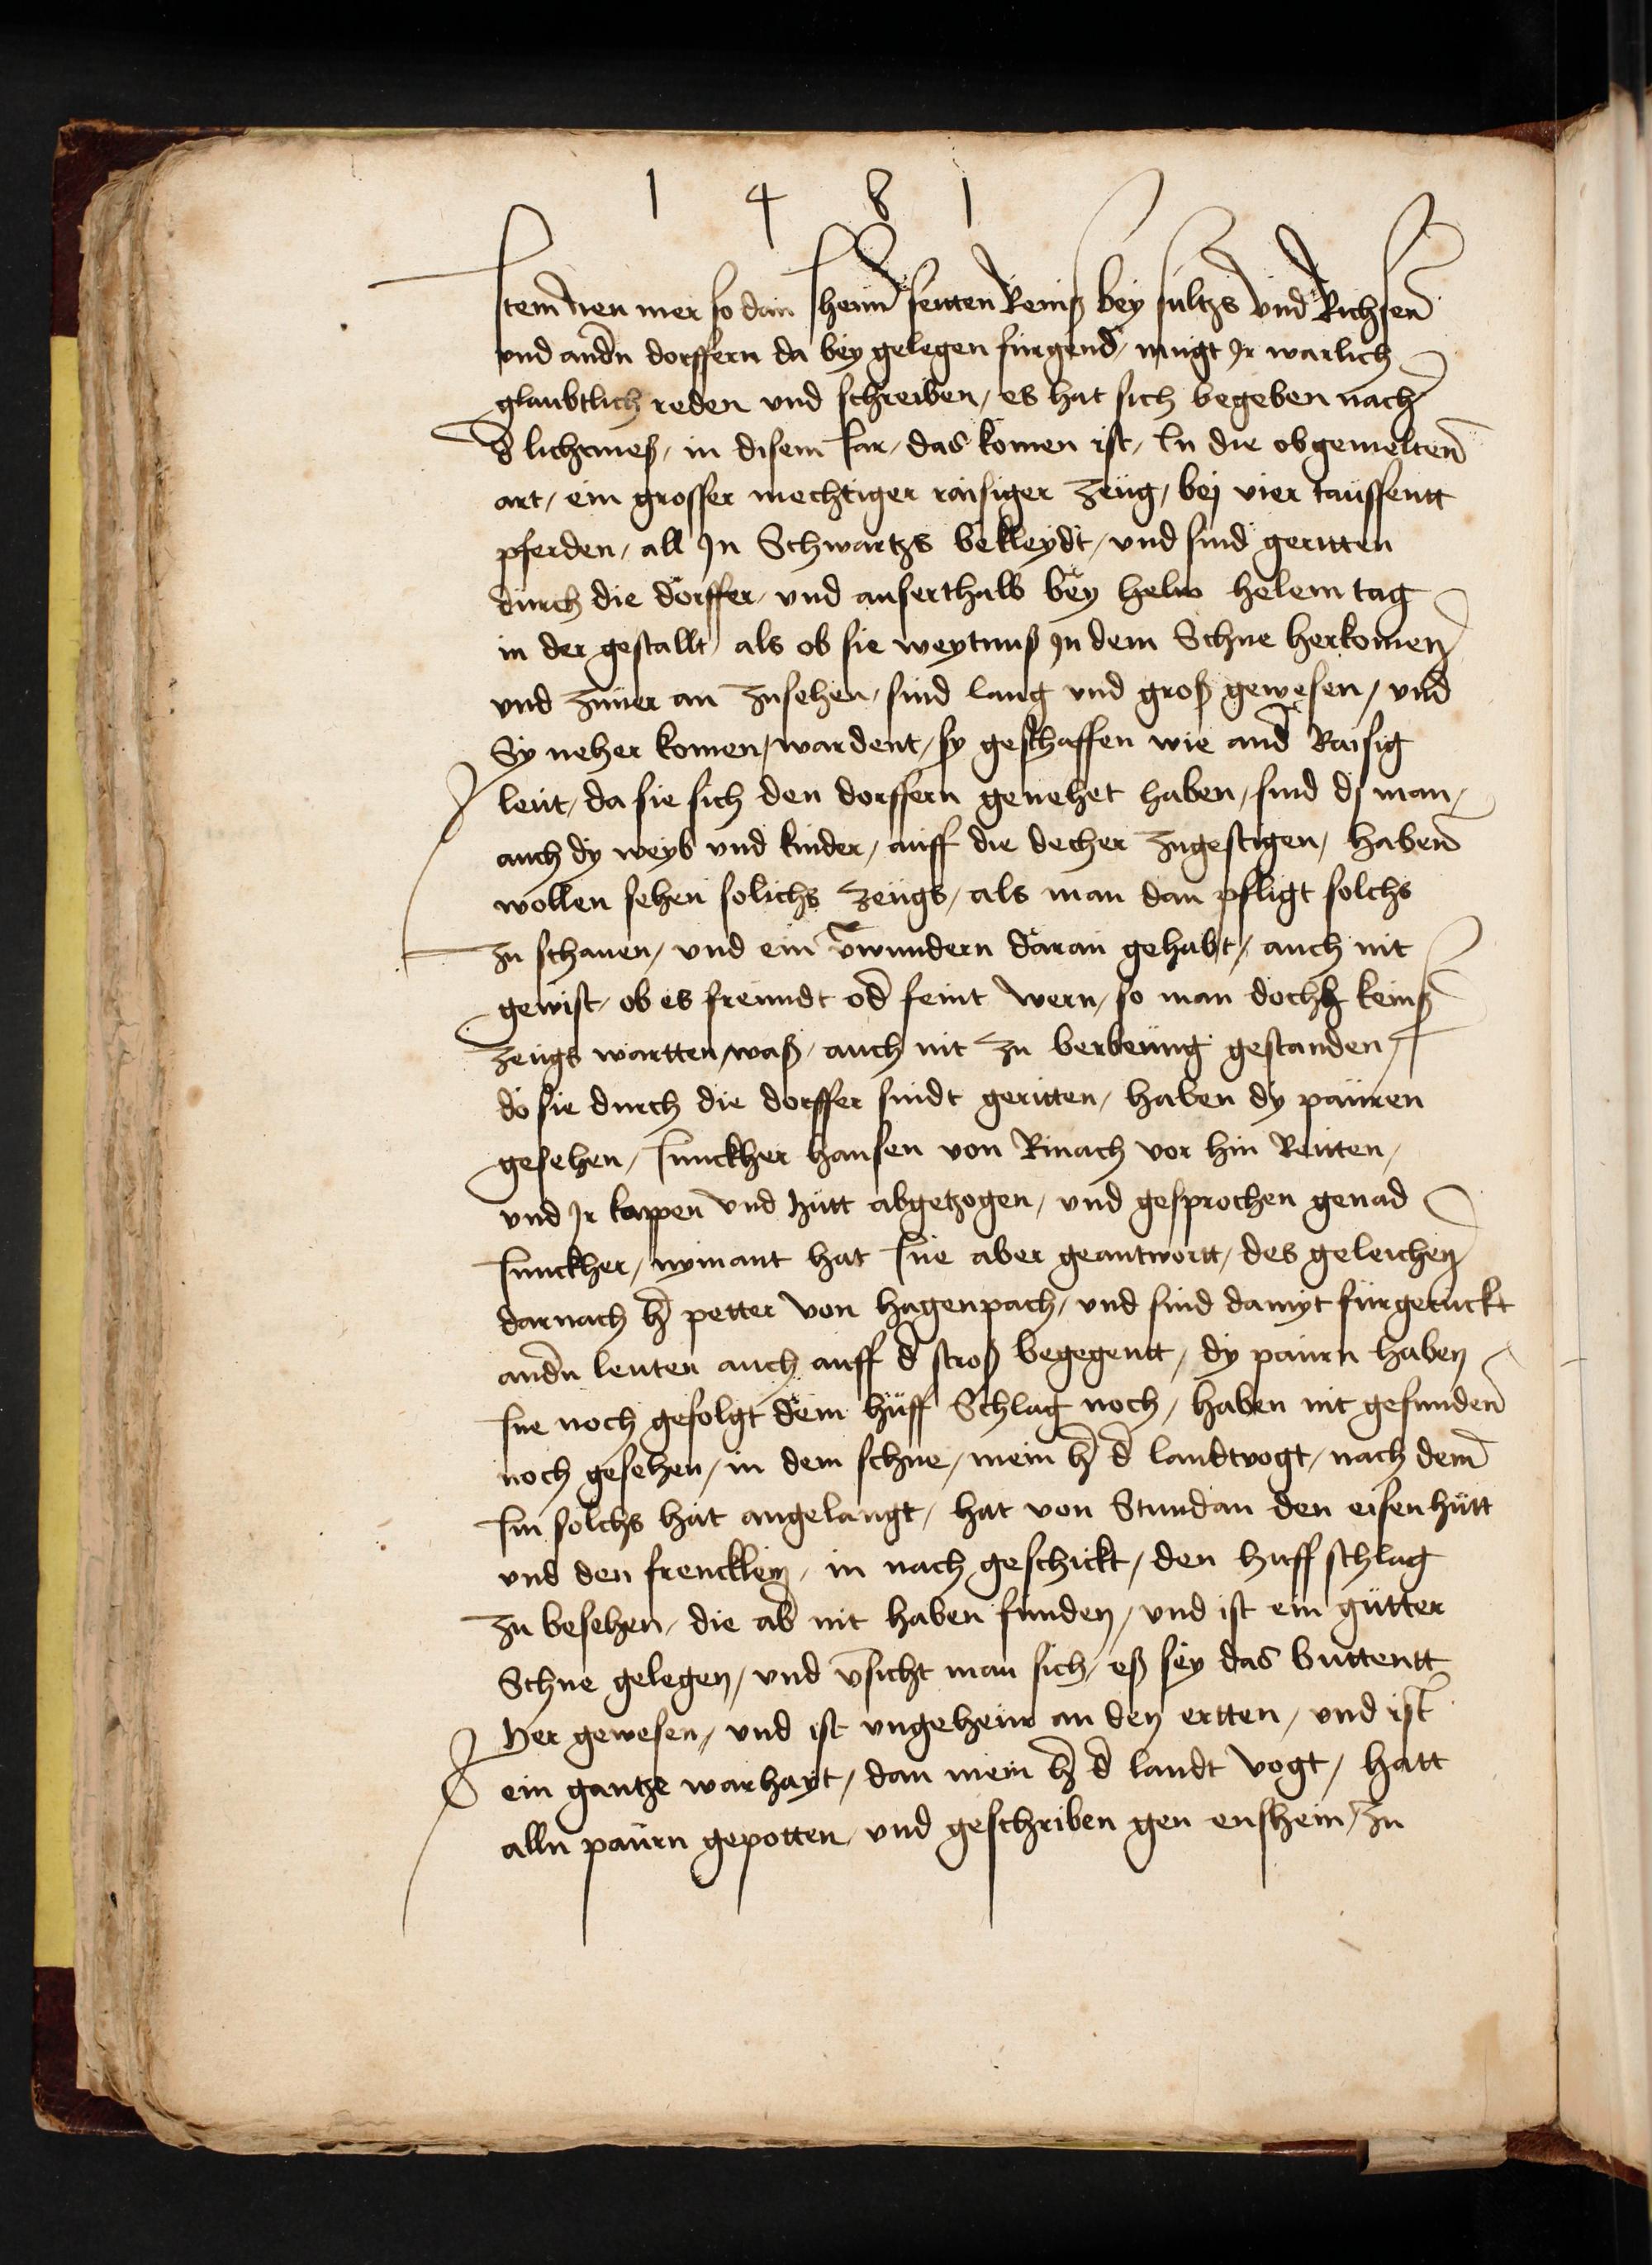 1 4 8 1
Item neu mer so dan Ihenn seitten Reinß bey sultzs vnd Richsen
vnd andn dorffern da bey gelegen fürgend, mugt Ir warlich
glaubtlich reden vnd schreiben, es hat sich begeben nach
d lichtmeß, in disem Iar, das komen ist, In die obgemelten
art, ein grosser mechtiger raisiger zeüg, bej vier taüssentt
pferden, all In Schwartzs bekleydt, vnd sind geritten
durch die dörffer, vnd auserthalb bey helem tag
in der gestallt, als ob sie weytnuß In dem Schne herkomen
vnd zuuer an zusehen, sind lang vnd groß gewesen, vnd
Sy neher komen, wardent, sy geschaffen wie and Raisig
leüt, da sie sich den dorffern genehet haben, sind dj man,
auch dy weyb vnd kinder, auff die decher zugestigen, haben
wollen sehen solichs zeügs, als man dan pfligt solchs
zu schauen, vnd ein vwundern daran gehabt, auch nit
gewist, ob es freundt od feint wern, so man doch keinß
zeügs wartten, waß, auch nit zu berbeüng gestanden,
do sie durch die dorffer sindt geritten, haben dy paüren
gesehen, Iunckher hansen von Rinach vor hin Reitten,
vnd Ir kappen vnd hütt abgetzogen, vnd gesprochen genad
Iunckher, nymant hat Sie aber geantwortt, des geleichen
darnach h petter von hagenpach, vnd sind damyt fürgeruckt
andn leuten auch auff d stroß begegentt, dy paurn haben
Ine noch gefolgt dem hüff Schlag noch, haben nit gefunden
noch gesehen, in dem schne, mein h d landtvogt, nach dem
Im solchs hat angelangt, hat von Stundan den eisenhütt
vnd den frencklein, in nach geschickt, den huffschlag
zu besehen, die ab nit haben funden, vnd ist ein gütter
Schne gelegen, vnd vsicht man sich, eß sey das buttentt
her gewesen, vnd ist vngeheür an den ertten, vnd ist
ein gantze warhayt, dan mein h d landt vogt, hatt
alln paürn gepotten, vnd geschriben gen ensheim, zu